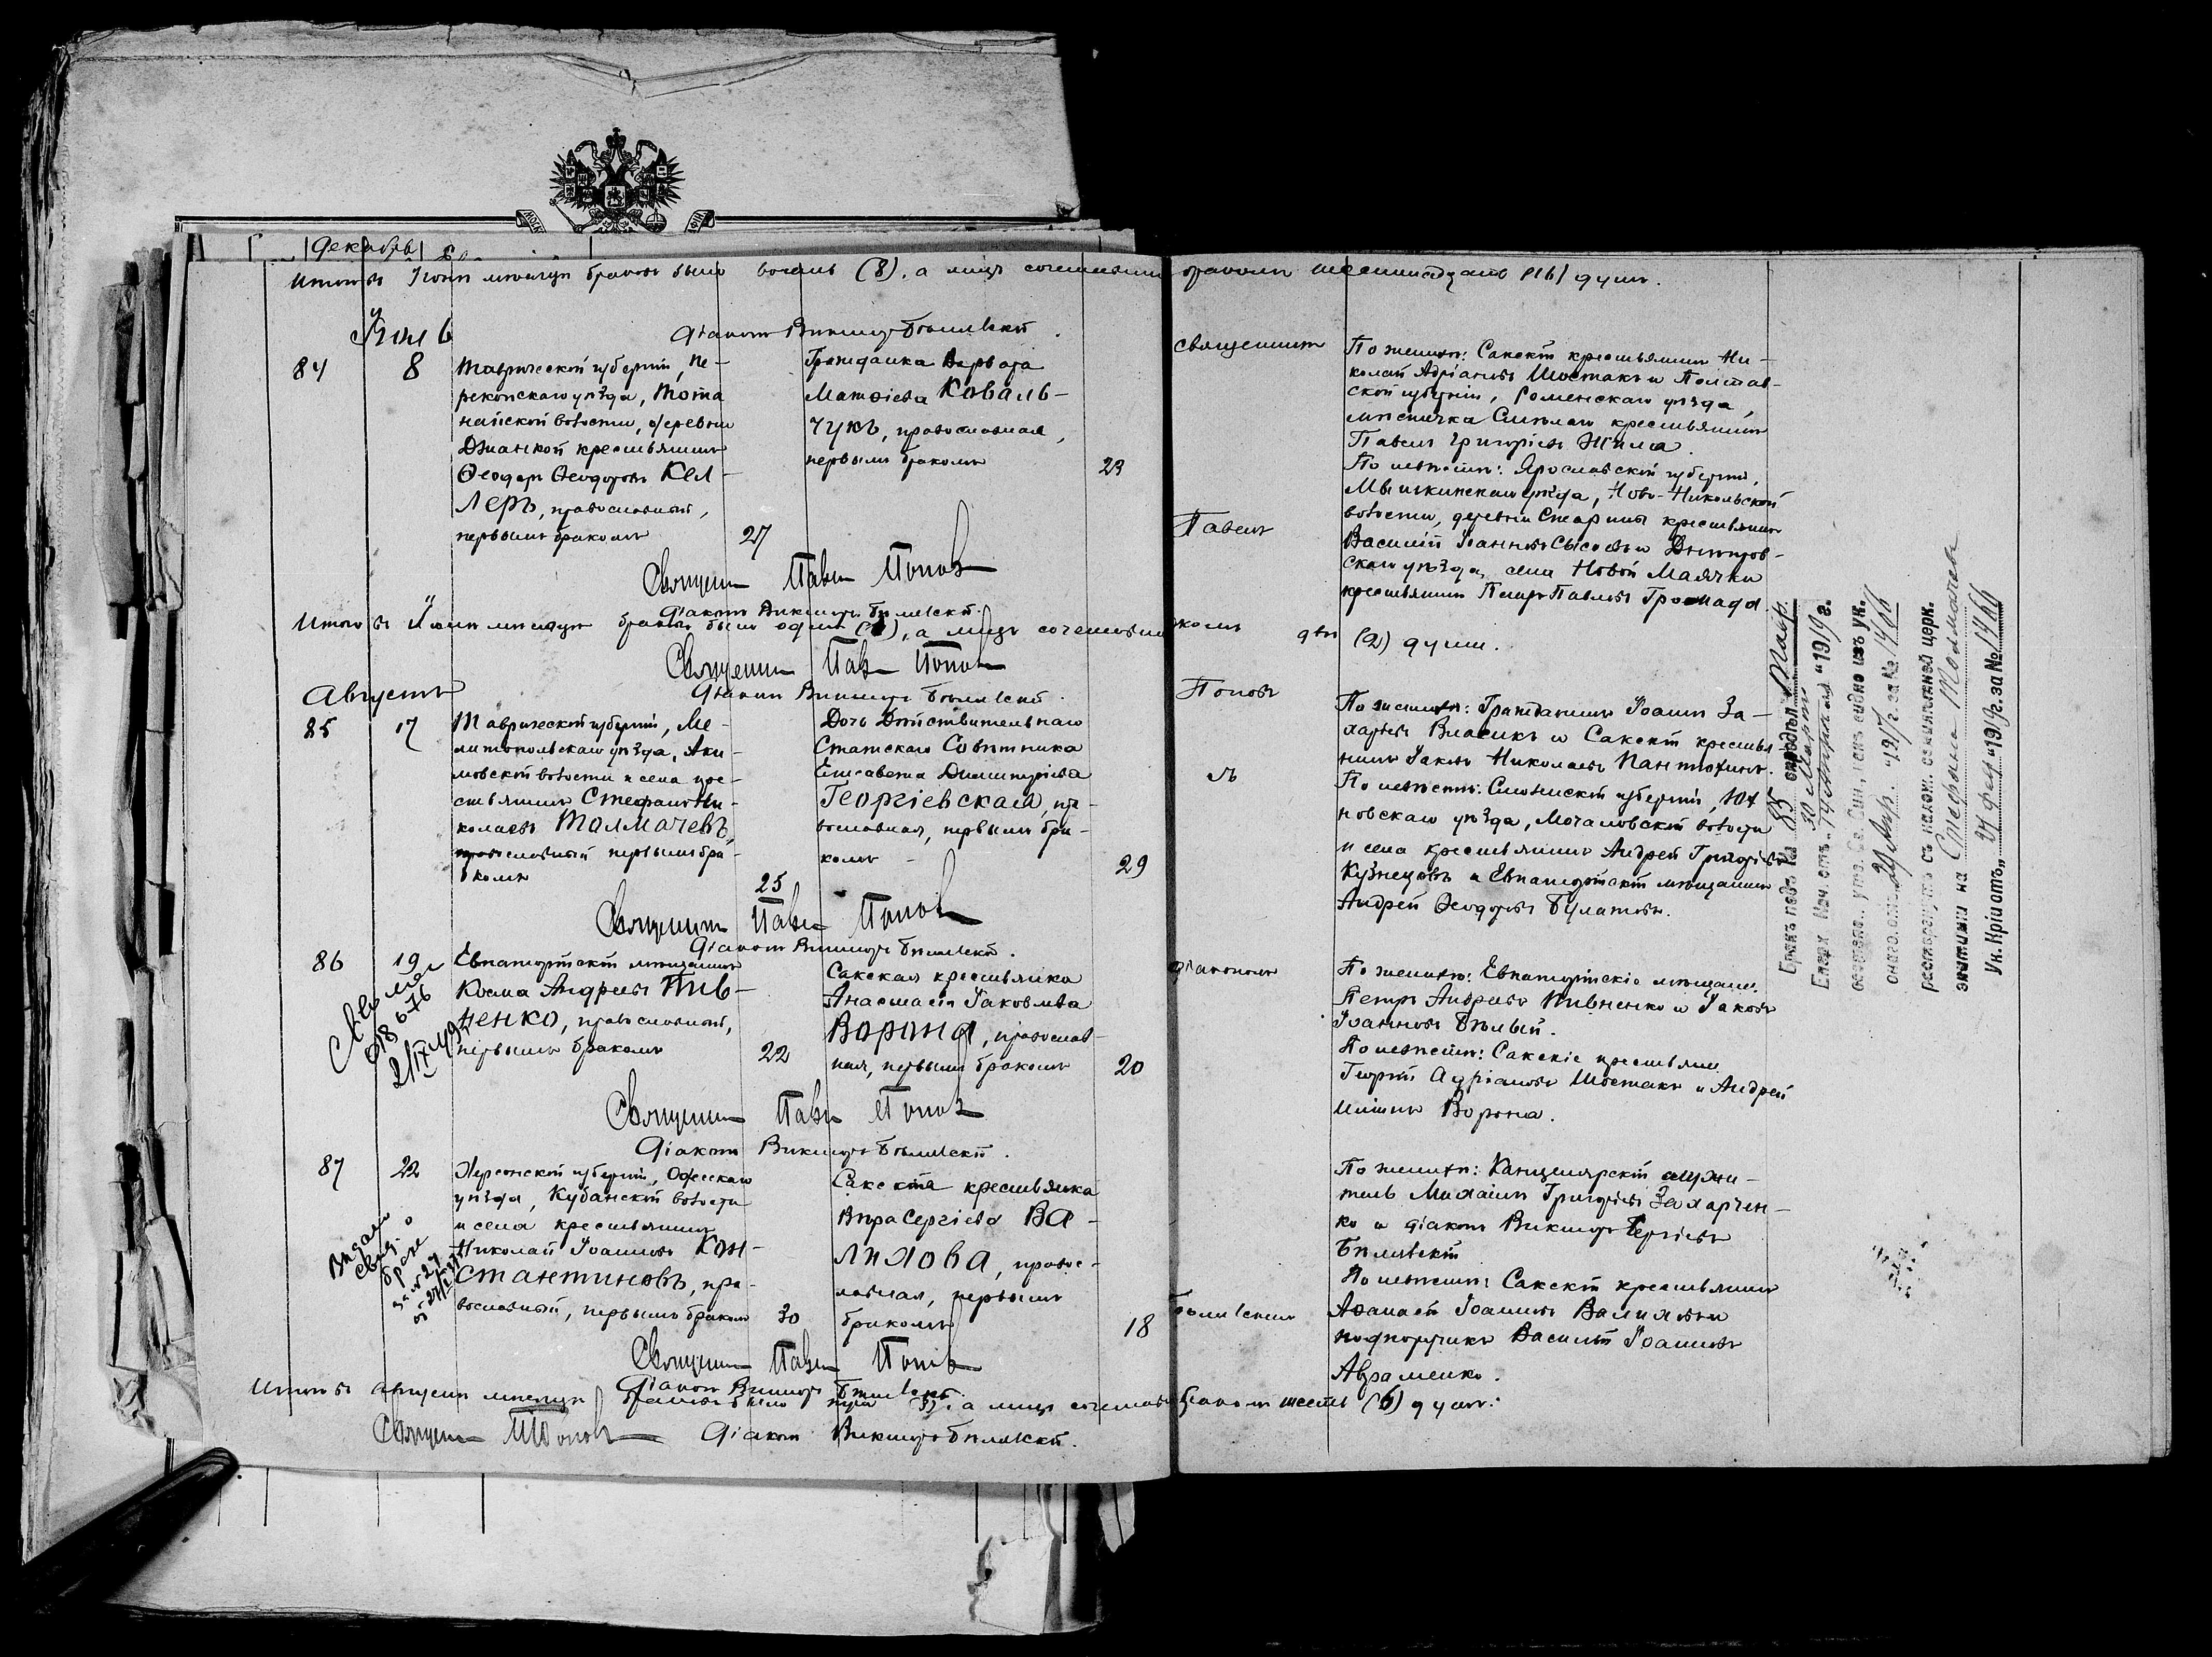 Декабрь
Итого въ Іюнѣ мѣсяцѣ браковъ было восемь (8), а лицъ сочетавш. бракомъ шестнадцать (16) душъ.
Діаконъ Викторъ Бѣлявскій.
Іюль
84
8
Таврической губерніи, Пе-
рекопскаго уѣзда, Тота
найской волости, деревни
Джанкой крестьянинъ
Ѳеодоръ Ѳеодоровъ Кел-
леръ, православный,
первымъ бракомъ
27
Гражданка Варвара
Матѳіева Коваль-
чукъ, православная,
первымъ бракомъ
23
Священникъ
Павелъ
По женихѣ: Сакскій крестьянинъ Ни-
колай Адріановъ Шостакъ и Полтав-
ской губерніи, Роменскаго уѣзда,
мѣстечка Смѣлаго крестьянинъ
Павелъ Григорьевъ Жила.
По невѣстѣ: Ярославской губерніи,
Мышкинскаго уѣзда, Ново-Никольской
волости, деревни Старины крестьянинъ
Василій Іоанновъ Сысоевъ и Днѣпров-
скаго уѣзда, села Новой Маячки
крестьянинъ Петръ Павловъ Громада
Священникъ Павелъ Поповъ
Діаконъ Викторъ Бѣлявскій.
Итого въ Іюлѣ мѣсяцѣ браковъ было одинъ (1), а лицъ сочетавш. двѣ (2) души.
Священникъ Павелъ Поповъ
Діаконъ Викторъ Бѣлявскій.
Августъ
85
17
Таврической губерніи, Ме-
литопольскаго уѣзда, Аки-
мовской волости и села кре-
стьянинъ Стефанъ Ни-
колаевъ Толмачевъ,
православный первымъ бра-
комъ
25
Дочь Дѣйствительнаго
Статскаго Совѣтника
Елисавета Димитріева
Георгіевская, пра-
вославная, первымъ бра-
комъ
29
Поповъ
съ
По женихѣ: Гражданинъ Іоаннъ За-
харьевъ Власикъ и Сакскій крестья-
нинъ Іаковъ Николаевъ Пантюхинъ.
По невѣстѣ: Смоленской губерніи, Юх
новскаго уѣзда, Мочаловской волости
и села крестьянинъ Андрей Григорьевъ
Кузнецовъ и Евпаторійскій мѣщанинъ
Андрей Ѳеодоровъ Булатовъ.
Священникъ Павелъ Поповъ
Діаконъ Викторъ Бѣлявскій.
86
19
Евпаторійскій мѣщанинъ
Косма Андреевъ Пив-
ненко, православный,
первымъ бракомъ
22
Сакская крестьянка
Анастасія Іаковлева
Ворона, православ-
ная, первымъ бракомъ
20
діакономъ
По женихѣ: Евпаторійскіе мѣщане
Петръ Андреевъ Пивненко и Іаковъ
Іоанновъ Бѣлый.
По невѣстѣ: Сакскіе крестьяне
Георгій Адріановъ Шостакъ и Андрей
Ворона.
Священникъ Павелъ Поповъ
Діаконъ Викторъ Бѣлявскій.
87
22
Выдано
свид. о
браке
за № 27
Херсонской губерніи, Одесскаго
уѣзда, Кубанской волости
и села крестьянинъ
Николай Іоанновъ Кон-
стантиновъ, пра-
вославный, первымъ бракомъ
30
Сакская крестьянка
Вѣра Сергіева Ва-
лилова, правос-
лавная, первымъ
бракомъ
18
Бѣлявскимъ
По женихѣ: Канцелярскій служи-
тель Михаилъ Григорьевъ Захарчен-
ко и діаконъ Викторъ Сергіевъ
Бѣлявскій
По невѣстѣ: Сакскій крестьянинъ
Аѳанасій Іоанновъ Валиловъ и
подпоручикъ Василій Іоанновъ
Авраменко.
Священникъ Павелъ Поповъ
Діаконъ Викторъ Бѣлявскій.
Итого въ августѣ мѣсяцѣ браковъ было три (3), а лицъ сочетавш. бракомъ шесть (6) душъ.
Священникъ Поповъ Діаконъ Викторъ Бѣлявскій.
Бракъ подъ № 85 опредѣл. Тавр.
Епарх. Нач. отъ 30 Марта 14 Апрѣля "1919 г.
утв. Св. Син., какъ видно изъ ук.
онаго отъ 29 Апр. "1919 г. за № 1466
расторгнутъ съ налож. семилѣтней церк.
эпитиміи на Стефана Толмачева